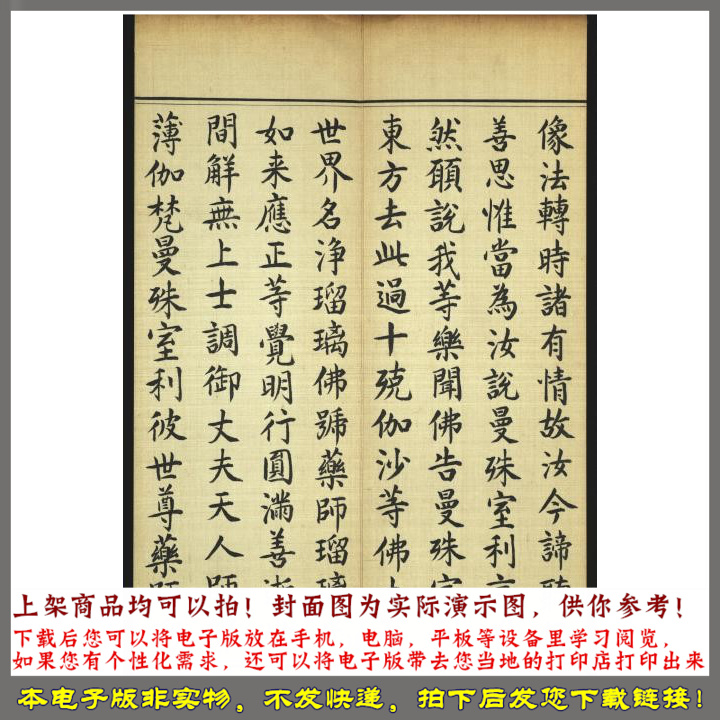 像法轉時諸有情故汝今諦
善思惟當為汝說曼殊室利
然願說我等樂聞佛告曼殊室
東方去此過十殑伽沙等佛
世界名淨瑠璃佛號藥師瑠璃
如来應正等覺明行圓滿善
間解無上士調御丈夫天人師
薄伽梵曼殊室利彼世尊藥
上架商品均可以拍！封面图为实际演示图，供你参考！
下载后您可以将电子版放在手机，电脑，平板等设备里学习阅览，
如果您有个性化需求，还可以将电子版带去您当地的打印店打印出来
本电子版非实物，不发快递，拍下后发您下载链接！